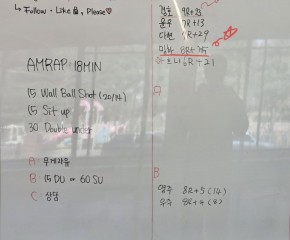 ↳ Follow · Like 👍, Please♡
AMRAP : 18MIN
15 Wall Ball Shot (20/14)
15 Sit up
30 Double under
A : 무게자유
B : 15 DU or 60 SU
C : 상담
9R+23
7R+13
다현 8R+29
8R+25
6R+21
A
B
영주 8R+5 (14)
우주 8R+4 (8)